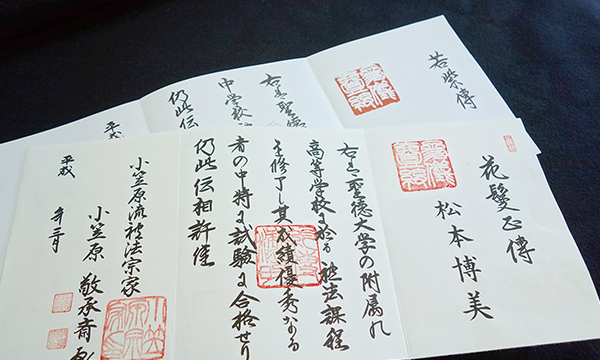 若紫傳
右者聖徳
中学校
仍此伝
平成
花鬘正傳
松本博美
右者聖徳大学の附属
高等学校に於る禮法課程
を修了し其成績優秀なる
者の中特に試験に合格せり
仍此伝相許
平成 年三月
小笠原流禮法宗家
小笠原 敬承斎